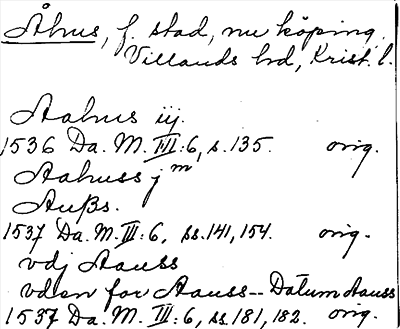 Åhus, f. stad, nu köping.
Villands hd, Krist. l.
Aahus iij.
1536 Da. M. III: 6, s. 135. orig.
Aahuss j m
Außs.
1537 Da. M. III: 6, ss. 141, 154. orig.
vdj Aauss
vden for Aauss -- Datum Aauss
1537 Da. M. III: 6, ss. 181, 182. orig.